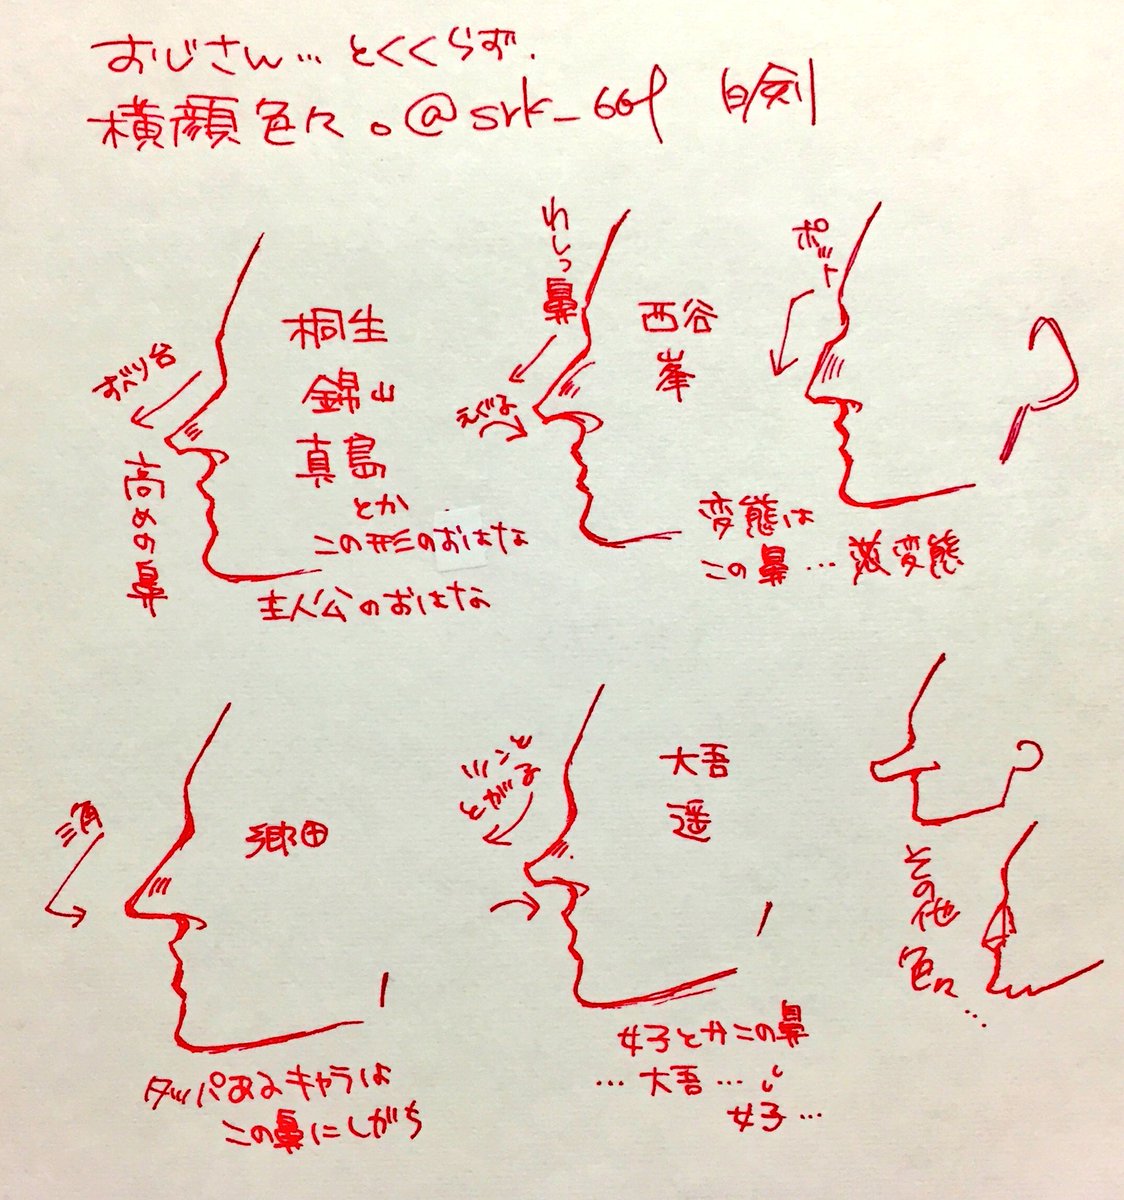 おじさん…とくくらず.
横顔色々。@srk_661 白剣
すべり台
高めの鼻
桐生
錦山
真島
とか
この形のおはな
主人公のおはな
わしっ鼻
えぐる
西谷
峯
ポット
変態は
この鼻…薄変態
三角
郷田
タッパあるキャラは
この鼻にしがち
ツンと
とがる
大吾
遥
女子とかこの鼻
…大吾…
女子…
その他
色々…